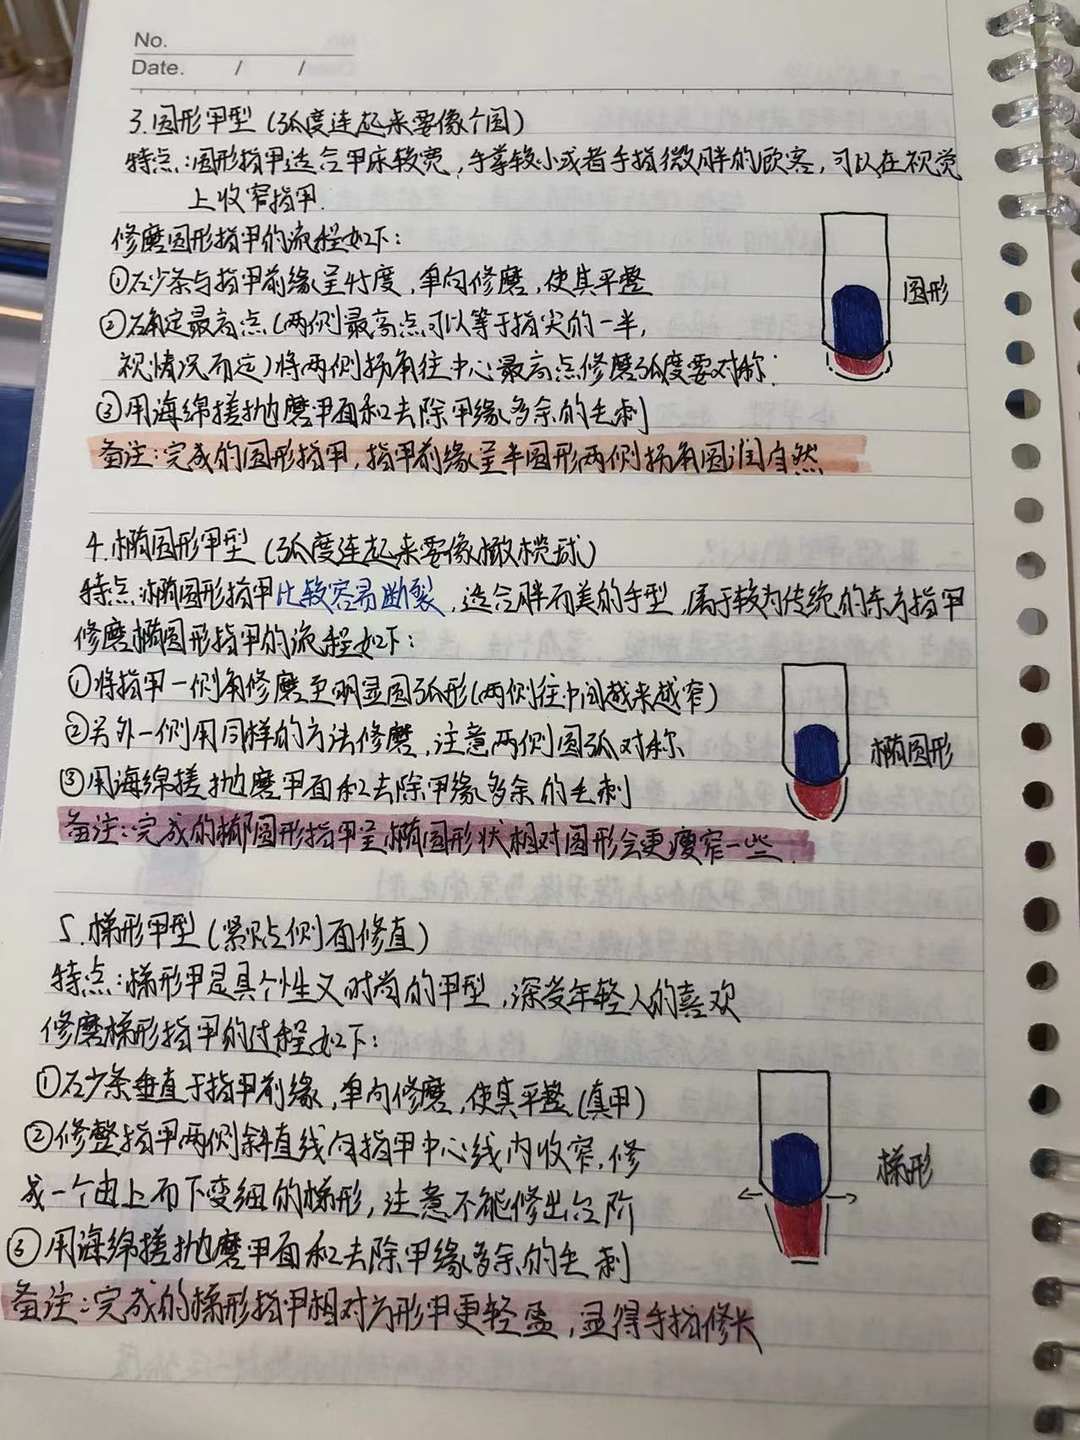 No.
Date. / /
3.圆形甲型（弧度连起来要像个圆）
特点：圆形指甲适合甲床较宽，手掌较小或者手指微胖的顾客，可以在视觉
上收窄指甲.
修磨圆形指甲的流程如下：
①石少条与指甲前缘呈45度，单向修磨，使其平整
圆形
②石确定最高点（两侧最高点可以等于指尖的一半，
视情况而定）将两侧扬角往中心最高点修磨弧度要对称；
③用海绵搓抛磨甲面和去除甲缘多余的毛刺
备注：完成的圆形指甲，指甲前缘呈半圆形两侧扬角圆润自然
4.椭圆形甲型（弧度连起来要像橄榄球）
特点：椭圆形指甲比较容易断裂，适合胖而美的手型，属于较为传统的东方指甲
修磨椭圆形指甲的流程如下：
①将指甲一侧角修磨至明显圆弧形（两侧往中间越来越窄）
②另外一侧用同样的方法修磨，注意两侧圆弧对称
椭圆形
③用海绵搓抛磨甲面和去除甲缘多余的毛刺
备注：完成的椭圆形指甲呈椭圆形状相对圆形会更瘦窄一些.
5.梯形甲型（紧贴侧面修直）
特点：梯形甲是具个性又时尚的甲型，深受年轻人的喜欢
修磨梯形指甲的过程如下：
①石少条垂直于指甲前缘，单向修磨，使其平整（真甲）
②修整指甲两侧斜直线向指甲中心线内收窄，修
梯形
成一个由上而下变细的梯形，注意不能修出台阶
③用海绵搓抛磨甲面和去除甲缘多余的毛刺
备注：完成的梯形指甲相对方形甲更轻盈，显得手指修长